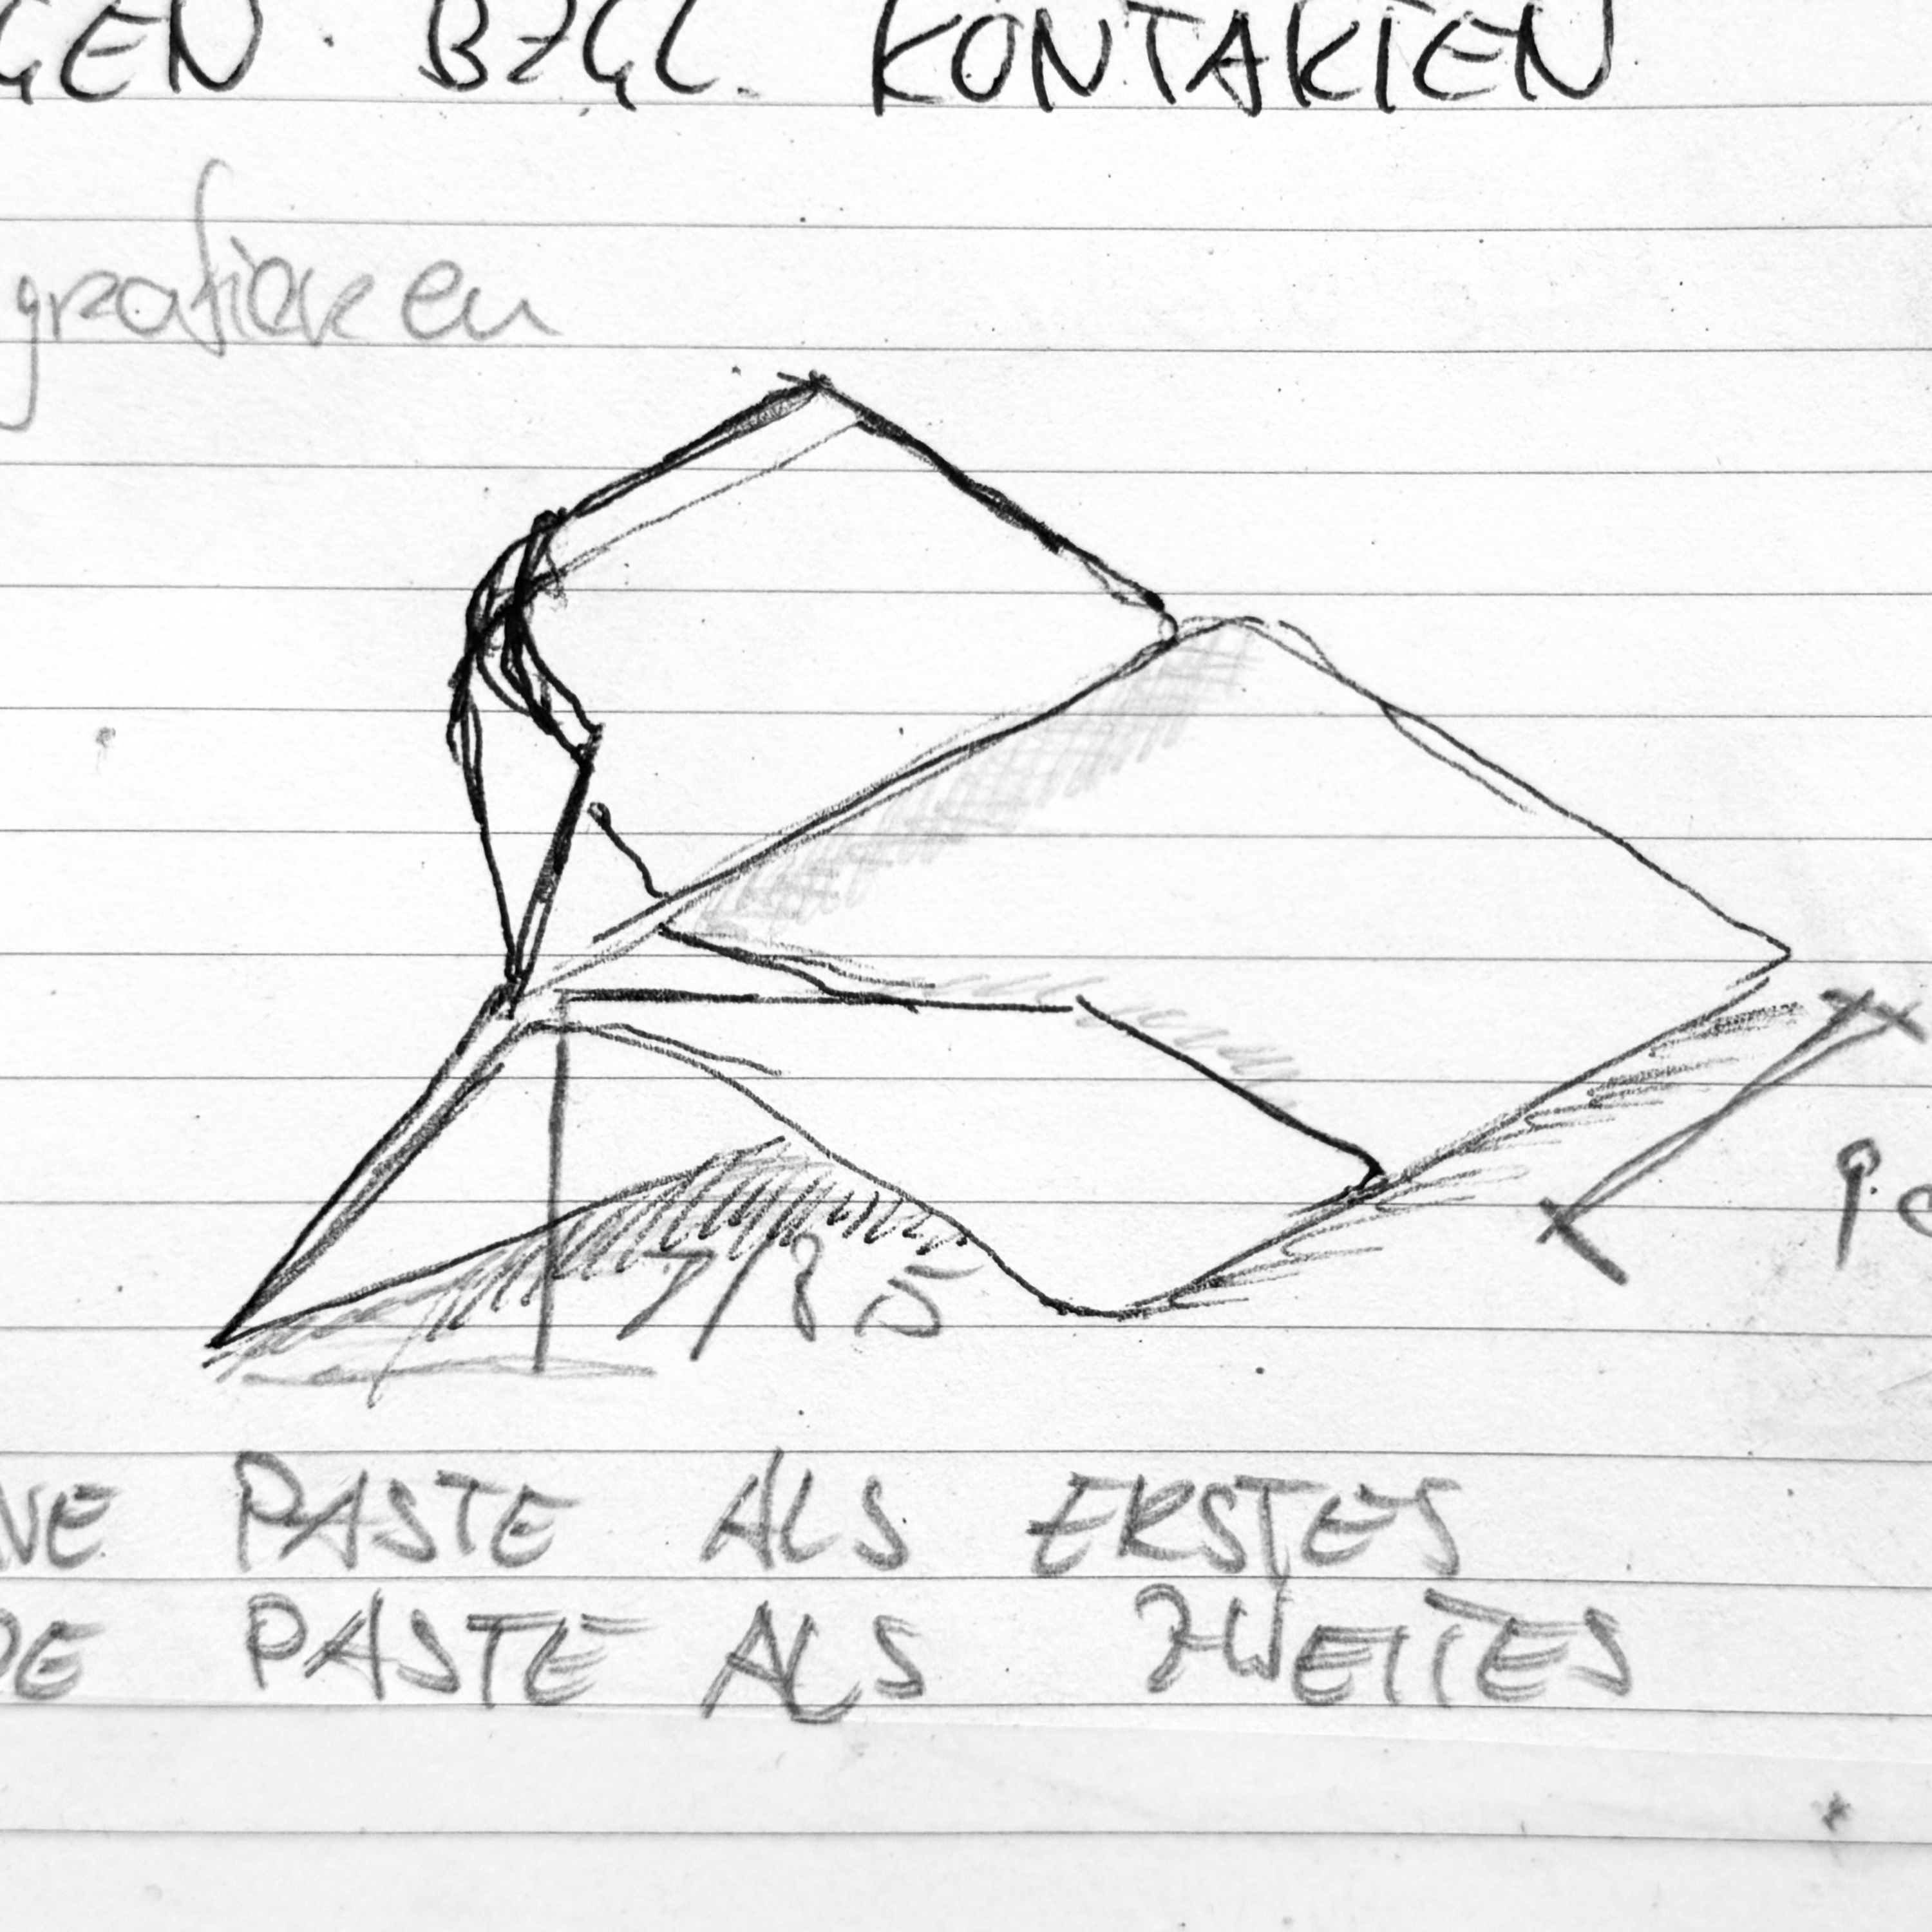 GEN. BZGL. KONTAKTEN
grafieren
7/85
NE PASTE ALS ERSTES
DE PASTE ALS ZWEITES